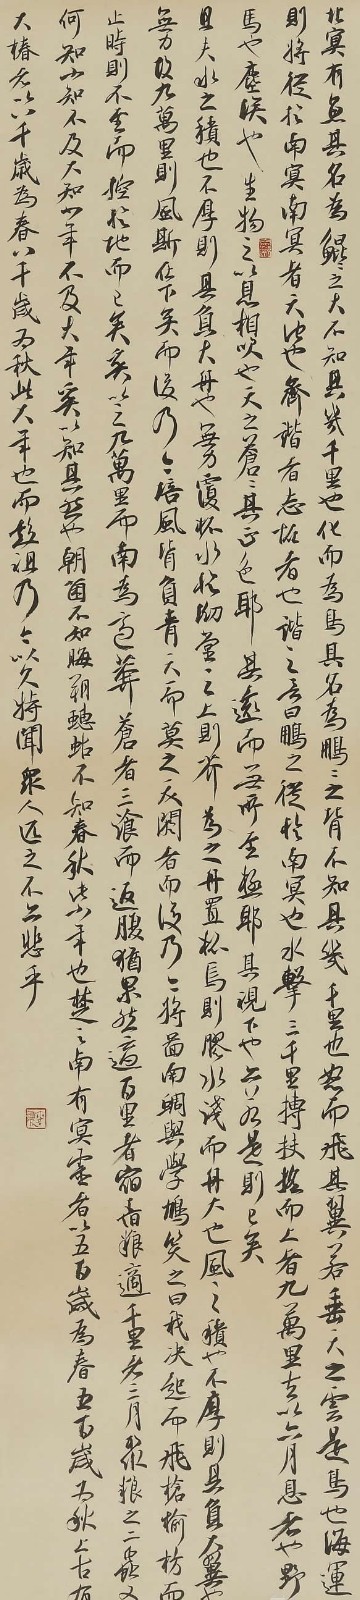 北冥有魚其名為鯤〻之大不知其幾千里也化而為鳥其名為鵬〻之背不知其幾千里也怒而飛其翼若垂天之雲是鳥也海運
則將徙於南冥南冥者天池也齊諧者志怪者也諧之言曰鵬之徙於南冥也水擊三千里摶扶搖而上者九萬里去以六月息者也野
馬也塵埃也生物之以息相吹也天之蒼〻其正色耶其遠而無所至極耶其視下也亦若是則已矣
且夫水之積也不厚則其負大舟也無力覆杯水於坳堂之上則芥為之舟置杯焉則膠水淺而舟大也風之積也不厚則其負大翼也
無力故九萬里則風斯在下矣而後乃今培風背負青天而莫之夭閼者而後乃今將圖南蜩與學鳩笑之曰我決起而飛槍榆枋而
止時則不至而控於地而已矣奚以之九萬里而南為適莽蒼者三飡而返腹猶果然適百里者宿舂糧適千里者三月聚糧之二蟲又
何知小知不及大知小年不及大年奚以知其然也朝菌不知晦朔蟪蛄不知春秋此小年也楚之南有冥靈者以五百歲為春五百歲為秋上古有
大椿者以八千歲為春八千歲為秋此大年也而彭祖乃今以久特聞眾人匹之不亦悲乎